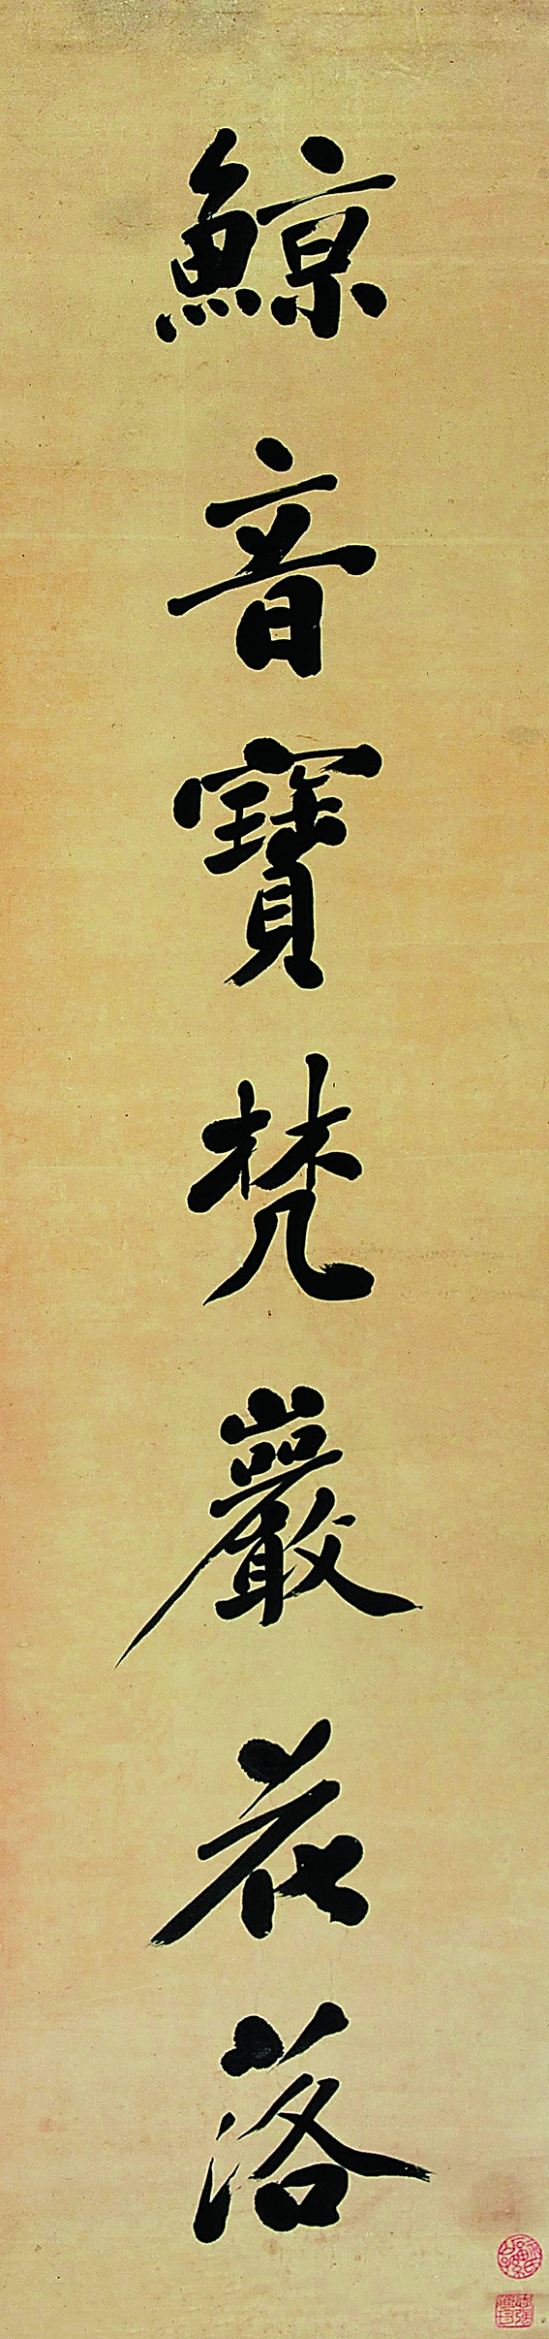 鯨音寶梵巖花落